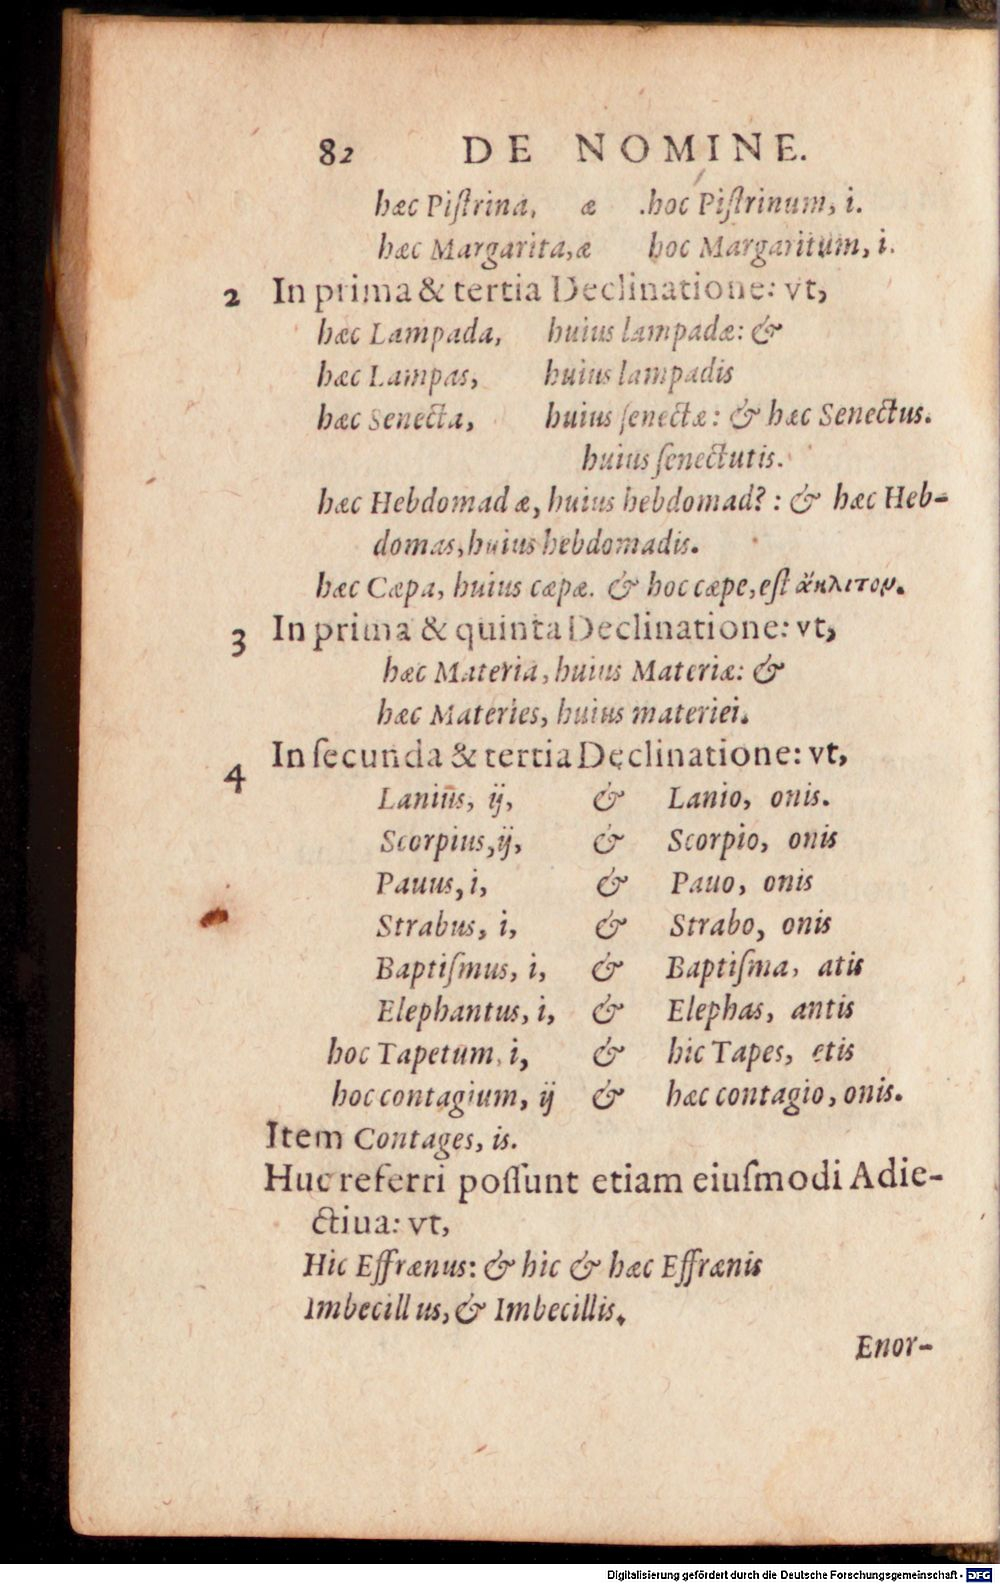 82 DE NOMINE.
hæc Piſtrina, æ .hoc Piſtrinum, i.
hæc Margarita,æ hoc Margaritum, i.
2 In prima & tertia Declinatione: vt,
hæc Lampada, huius lampadæ: &
hæc Lampas, huius lampadis
hæc Senecta, huius ſenectæ: & hæc Senectus.
huius ſenectutis.
hæc Hebdomad æ, huius hebdomad? : & hæc Heb-
domas, huius hebdomadis.
hæc Cæpa, huius cæpæ. & hoc cæpe, eſt ἄκλιτον.
3 In prima & quinta Declinatione: vt,
hæc Materia, huius Materiæ: &
hæc Materies, huius materiei.
4 In ſecunda & tertia Declinatione: vt,
Lanius, ij, & Lanio, onis.
Scorpius, ij, & Scorpio, onis
Pauus, i, & Pauo, onis
Strabus, i, & Strabo, onis
Baptiſmus, i, & Baptiſma, atis
Elephantus, i, & Elephas, antis
hoc Tapetum, i, & hic Tapes, etis
hoc contagium, ij & hæc contagio, onis.
Item Contages, is.
Huc referri poſſunt etiam eiuſmodi Adie-
ctiua: vt,
Hic Effrænus: & hic & hæc Effrænis
Imbecill us, & Imbecillis.
Enor-
Digitalisierung gefördert durch die Deutsche Forschungsgemeinschaft - DFG